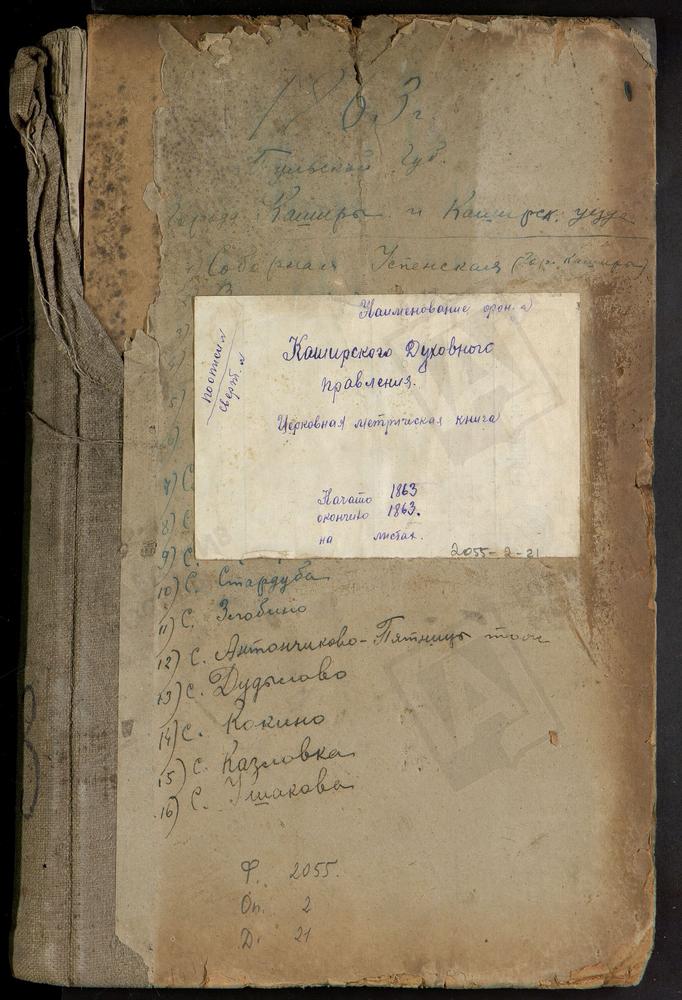 1863 г.
Тульской Губ.
Города Каширы и Каширск. уезда
1) Соборная Успенская (гор. Каширы)
2)
Наименование
Каширского Духовного
правления.
Церковная метрическая книга
Начато 1863
окончено 1863.
на листах.
2055-2-21
3)
4)
5)
6)
7) С.
8) С.
9) С.
10) С. Стардуба
11) С. Злобино
12) С. Антончиково-Пятницы тож
13) С. Дудылово
14) С. Кокино
15) С. Казловка
16) С. Ушакова
Ф. 2055.
Оп. 2
Д. 21